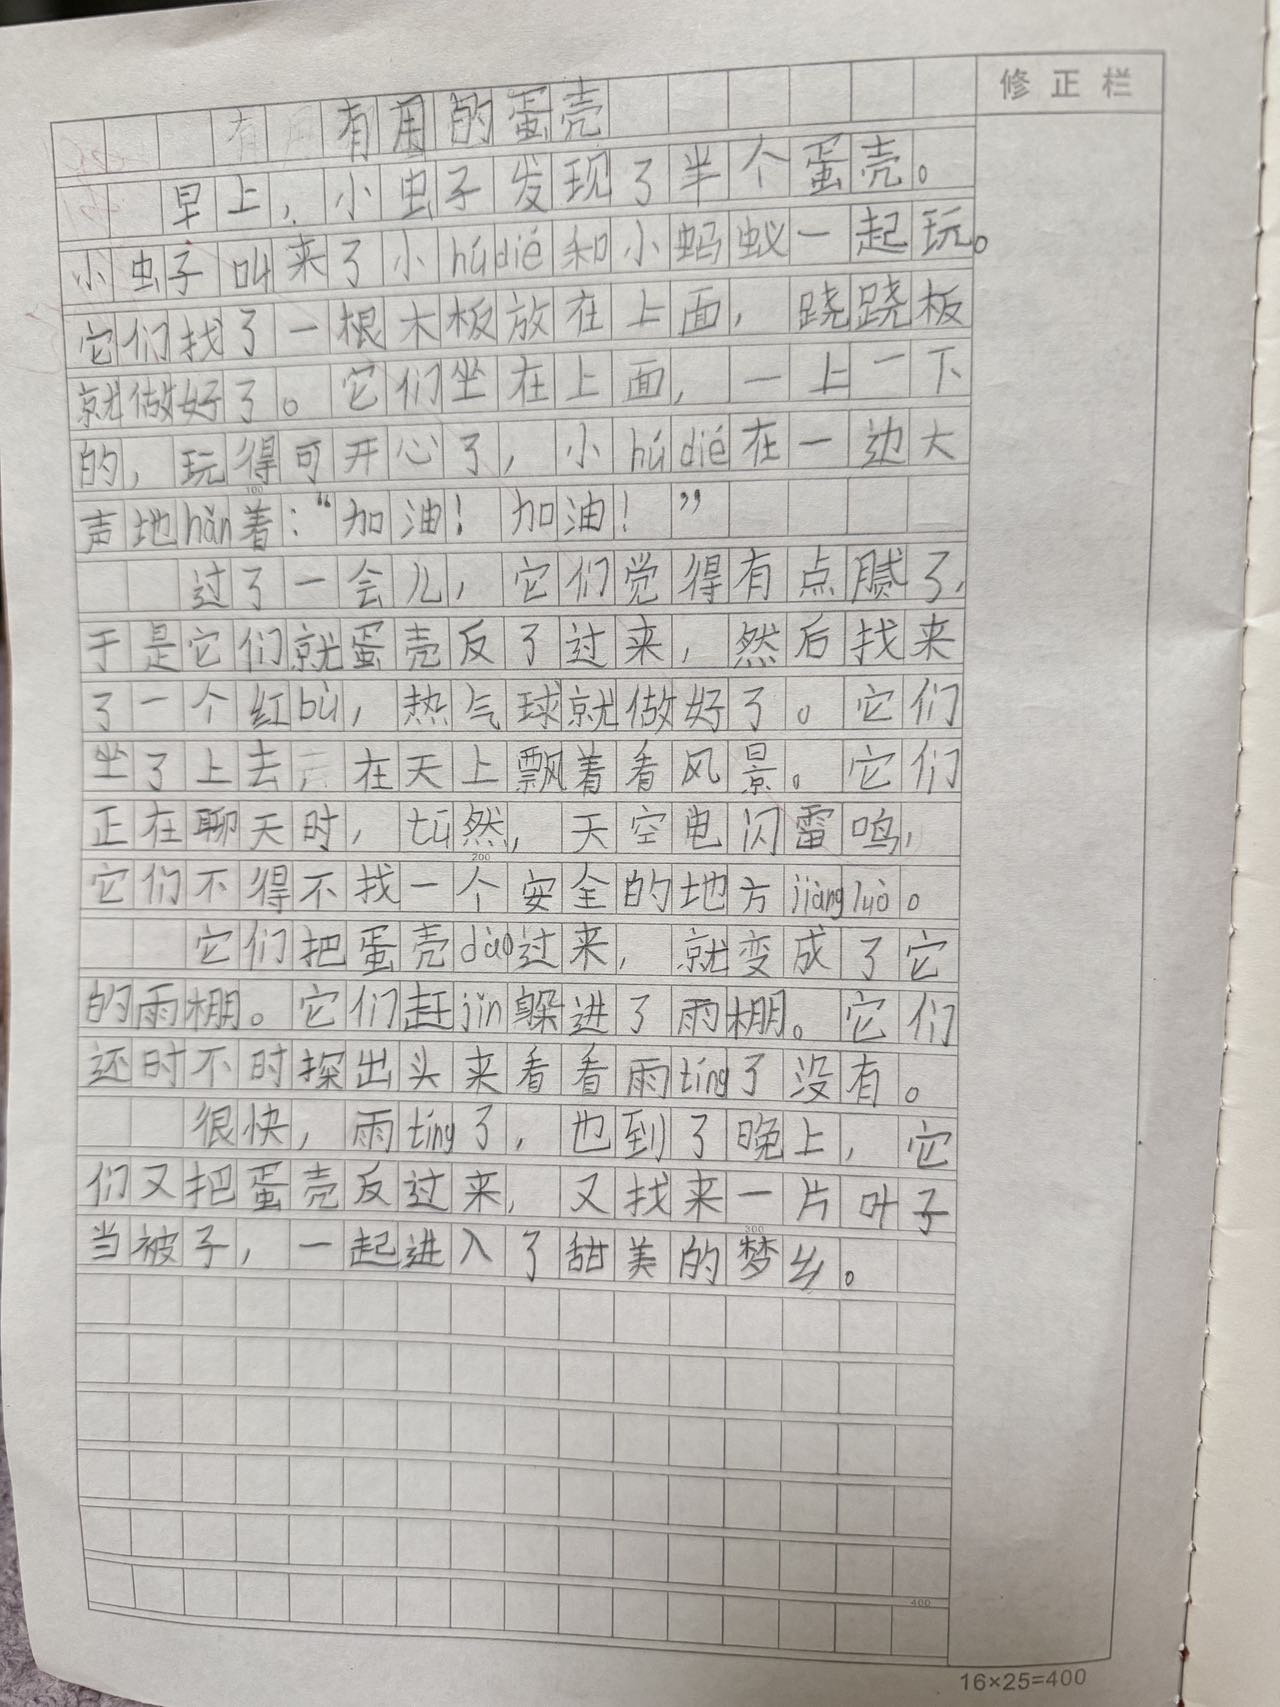 有用的蛋壳
修正栏
早上，小虫子发现了半个蛋壳。
小虫子叫来了小húdié和小蚂蚁一起玩。
它们找了一根木板放在上面，跷跷板
就做好了。它们坐在上面，一上一下
的，玩得可开心了，小húdié在一边大
声地hǎn着：“加油！加油！”
100
过了一会儿，它们觉得有点腻了，
于是它们就蛋壳反了过来，然后找来
了一个红bù，热气球就做好了。它们
坐了上去 在天上飘着看风景。它们
正在聊天时，tū然，天空电闪雷鸣，
200
它们不得不找一个安全的地方jiàngluò。
它们把蛋壳dào过来，就变成了它
的雨棚。它们赶jǐn躲进了雨棚。它们
还时不时探出头来看看雨tíng了没有。
很快，雨tíng了，也到了晚上，它
们又把蛋壳反过来，又找来一片叶子
300
当被子，一起进入了甜美的梦乡。
400
16×25=400